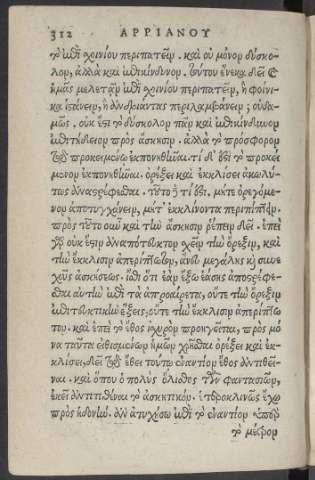 312 ΑΡΡΙΑΝΟΥ
τὸ ἐπὶ σχοινίου περιπατεῖν. καὶ οὐ μόνον δύσκο-
λον, ἀλλὰ καὶ ἐπικίνδυνον. τούτου ἕνεκα δεῖ καὶ
ἡμᾶς μελετᾶν ἐπὶ σχοινίου περιπατεῖν, ἢ φοίνι-
κα ἱστάνειν, ἢ ἀνδριάντας περιλαμβάνειν; οὐδα-
μῶς. οὐκ ἔστι τὸ δύσκολον πᾶν καὶ ἐπικίνδυνον
ἐπιτήδειον πρὸς ἄσκησιν. ἀλλὰ τὸ πρόσφορον
τῷ προκειμένῳ ἐκπονηθῆναι. τί δ' ἐστὶ τὸ προκεί
μενον ἐκπονηθῆναι. ὀρέξει καὶ ἐκκλίσει ἀκωλύ-
τως ἀναστρέφεσθαι. τοῦτο δὲ τί ἐστι, μήτε ὀρεγόμε-
νον ἀποτυγχάνειν, μήτ' ἐκκλίνοντα περιπίπτειν.
πρὸς τοῦτο οὖν καὶ τὴν ἄσκησιν ῥέπειν δεῖ. ἐπεὶ
γὰρ οὐκ ἔστιν ἀναπότευκτον σχεῖν τὴν ὄρεξιν, καὶ
τὴν ἔκκλισιν ἀπερίπτωτον, ἄνευ μεγάλης καὶ συνε
χοῦς ἀσκήσεως. ἴσθι ὅτι ἐὰν ἔξω ἐάσῃς ἀποστρέφε-
σθαι αὐτὴν ἐπὶ τὰ ἀπροαίρετα, οὔτε τὴν ὄρεξιν
ἐπιτευκτικὴν ἕξεις, οὔτε τὴν ἔκκλισιν ἀπερίπτω
τον. καὶ ἐπεὶ τὸ ἔθος ἰσχυρὸν προηγεῖται, πρὸς μό
να ταῦτα εἰθισμένων ἡμῶν χρῆσθαι ὀρέξει καὶ ἐκ-
κλίσει, δεῖ τῷ ἔθει τούτῳ ἐναντίον ἔθος ἀντιθεῖ-
ναι. καὶ ὅπου ὁ πολὺς ὄλισθος τῶν φαντασιῶν,
ἐκεῖ ἀντιτιθέναι τὸ ἀσκητικόν. ἑτεροκλινῶς ἔχω
πρὸς ἡδονήν. ἀνατυχήσω ἐπὶ τὸ ἐναντίον ὑπὲρ
τὸ μέτρον